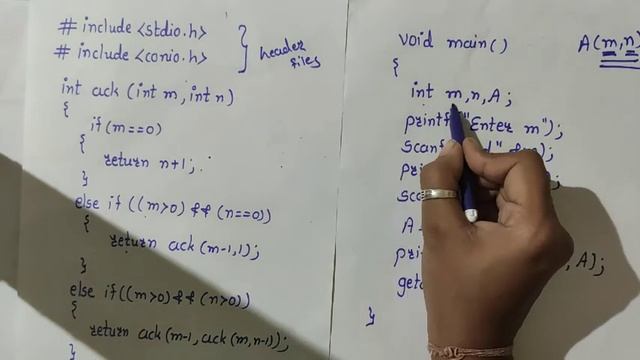 # include <stdio.h>
# include <conio.h>
header files
int ack (int m, int n)
{
if (m==0)
{
return n+1;
}
else if ((m>0) && (n==0))
{
return ack (m-1,1);
}
else if((m>0)&&(n>0))
{
return ack(m-1,ack(m,n-1));
}
void main()
A(m,n)
{
int m,n,A;
printf("Enter m");
A);
}